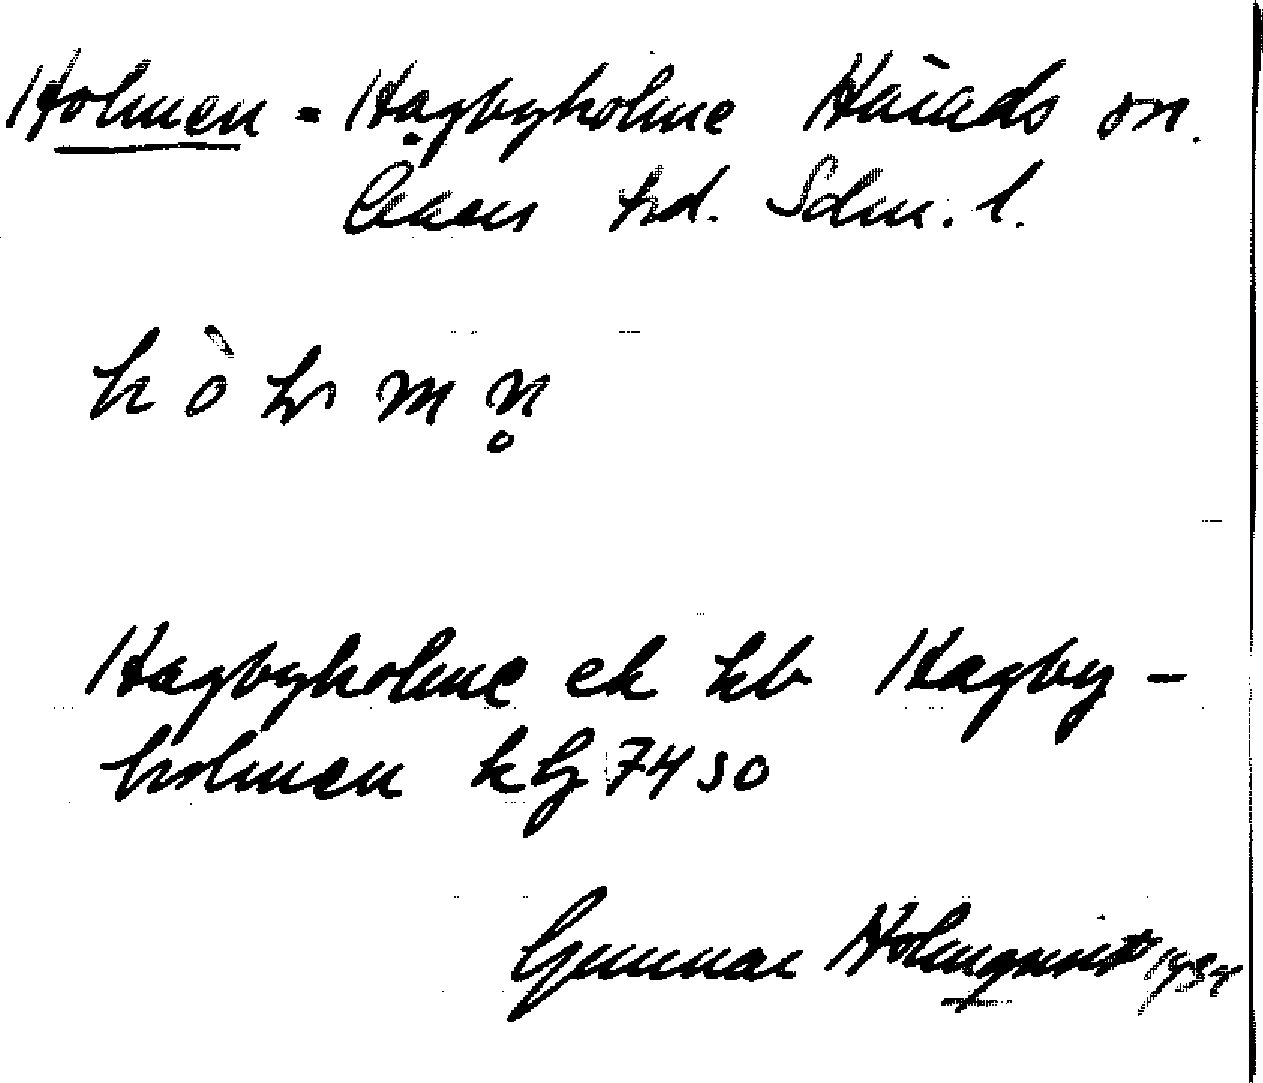 Holmen = Hagbyholme Härads sn.
Åkers hd. Sdm. l.
h ò l m n̥
Hagbyholme ek kb Hagby-
holmen hfl 7450
Gunnar Holmqvist 1934